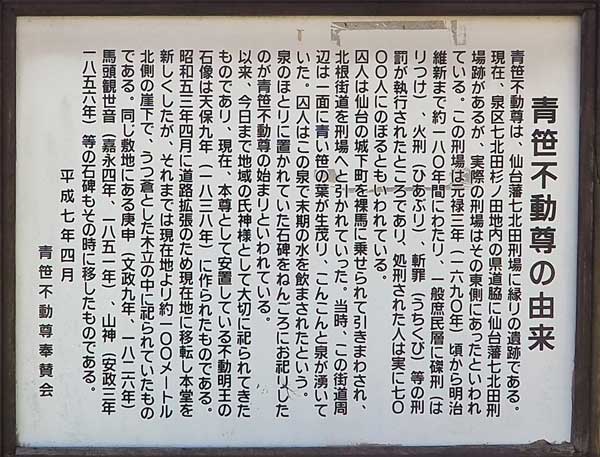 青笹不動尊の由来
青笹不動尊は、仙台藩七北田刑場に縁りの遺跡である。
現在、泉区七北田杉ノ田地内の県道脇に仙台藩七北田刑
場跡があるが、実際の刑場はその東側にあったといわれ
ている。この刑場は元禄三年（一六九〇年）頃から明治
維新まで約一八〇年間にわたり、一般庶民層に磔刑（は
りつけ）、火刑（ひあぶり）、斬罪（うちくび）等の刑
罰が執行されたところであり、処刑された人は実に七〇
〇〇人にのぼるともいわれている。
囚人は仙台の城下町を裸馬に乗せられて引きまわされ、
北根街道を刑場へと引かれていった。当時、この街道周
辺は一面に青い笹の葉が生茂り、こんこんと泉が湧いて
いた。囚人はこの泉で末期の水を飲まされたという。
泉のほとりに置かれていた石碑をねんごろにお祀りした
のが青笹不動尊の始まりといわれている。
以来、今日まで地域の氏神様として大切に祀られてきた
ものであり、現在、本尊として安置している不動明王の
石像は天保九年（一八三八年）に作られたものである。
昭和五三年四月に道路拡張のため現在地に移転し本堂を
新しくしたが、それまでは現在地より約一〇〇メートル
北側の崖下で、うつ蒼とした木立の中に祀られていたもの
である。同じ敷地にある庚申（文政九年、一八二六年）
馬頭観世音（嘉永四年、一八五一年）、山神（安政三年
一八五六年）等の石碑もその時に移したものである。
平成七年四月
青笹不動尊奉賛会